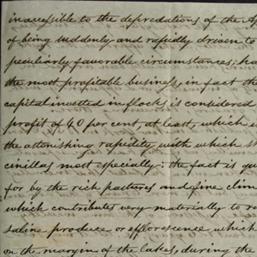 inaccessible to the depredations of the Ap
of being suddenly and rapidly driven to
peculiarly favorable circumstances; ha
the most profitable business, in fact the
capital invested in flocks is considered
profit of 40 per cent, at least, which a
the astonishing rapidity with which s
cinillas most specially: the fact is qu
for by the rich pastures and fine clim
which contributes very materially to r
saline produce or efflorescence which
on the margin of the lakes, during the